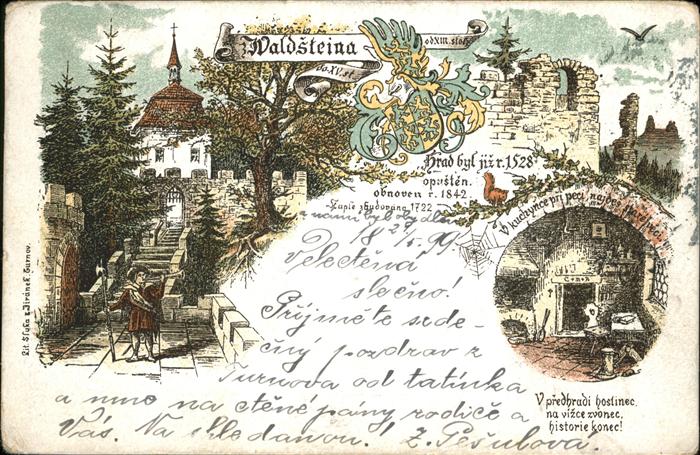 Z Valdšteina
od XIII. stol.
do XV. st.
Hrad byl již r. 1528
opuštěn.
obnoven r. 1842.
Kaple zbudována 1722
V kuchyňce při peci
18 29/5 99.
Velectěná
slečno!
Přijměte srde-
čný pozdrav z
Turnova od tatínka
a mne na ctěné pány rodiče a
Vás. Na shledanou! Z. Pěšulová.
V předhradí hostinec,
na vížce zvonec,
historie konec!
Lit. Sluka a Jiránek Turnov.